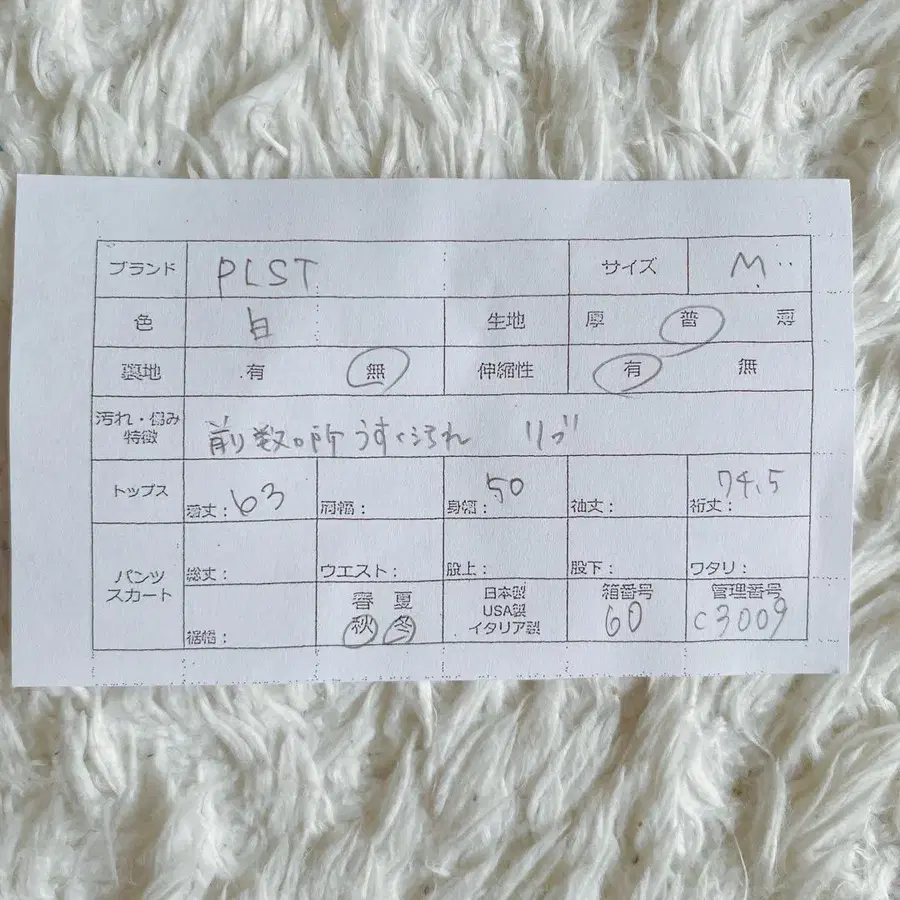 ブランド PLST サイズ M
色 白 生地 厚 普 薄
裏地 有 無 伸縮性 有 無
汚れ・傷み
特徴
前数ヶ所うすく汚れ リブ
トップス 着丈：63 肩幅： 身幅：50 袖丈： 裄丈：74.5
パンツ
スカート
総丈： ウエスト： 股上： 股下： ワタリ：
裾幅：
春 夏
秋 冬
日本製
USA製
イタリア製
箱番号
60
管理番号
C3009